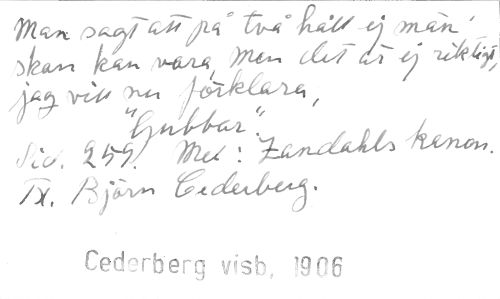 Man sagt att på två håll ej män
skan kan vara, Men det är ej riktigt,
jag vill nu förklara,
"Gubbar".
Sid. 259. Mel: Zandahls kanon.
Tx. Björn Cederberg.
Cederberg visb, 1906